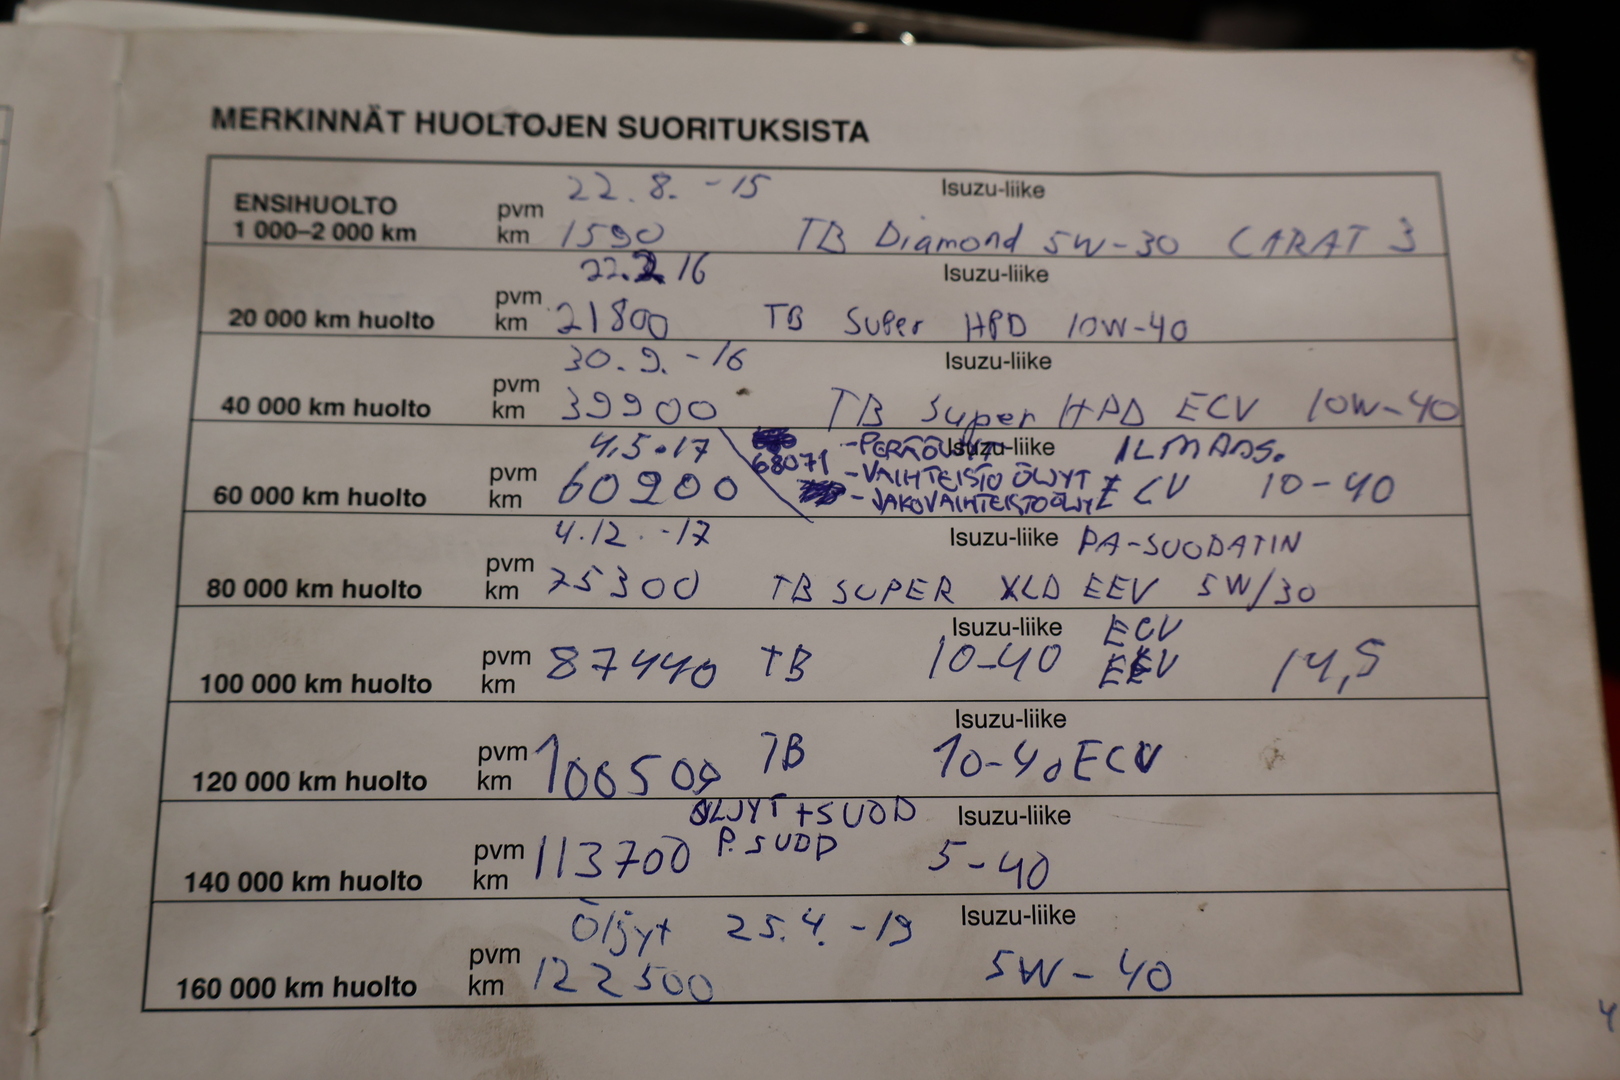 MERKINNÄT HUOLTOJEN SUORITUKSISTA
22.8. -15 Isuzu-liike
ENSIHUOLTO pvm
1 000–2 000 km km 1590 TB Diamond 5W-30 CARAT 3
22.2 16 Isuzu-liike
pvm
20 000 km huolto km 21800 TB Super HPD 10W-40
30.9. -16 Isuzu-liike
pvm
40 000 km huolto km 39900 TB Super HPD ECV 10W-40
4.5.17 -PERÄÖLJYT Isuzu-liike ILMANS.
pvm 68071 -VAIHTEISTO ÖLJYT
60 000 km huolto km 60900 -JAKOVAIHTEISTOÖLJYT ECV 10-40
4.12. -17 Isuzu-liike PA-SUODATIN
pvm
80 000 km huolto km 75300 TB SUPER XLD EEV 5W/30
Isuzu-liike ECV
pvm 87440 TB 10-40 EEV 14,5
100 000 km huolto km
Isuzu-liike
pvm TB 10-40 ECV
120 000 km huolto km 100500
ÖLJYT+SUOD Isuzu-liike
pvm 113700 P.SUOD 5-40
140 000 km huolto km
Öljyt 25.4. -19 Isuzu-liike
pvm
160 000 km huolto km 122500 5W-40